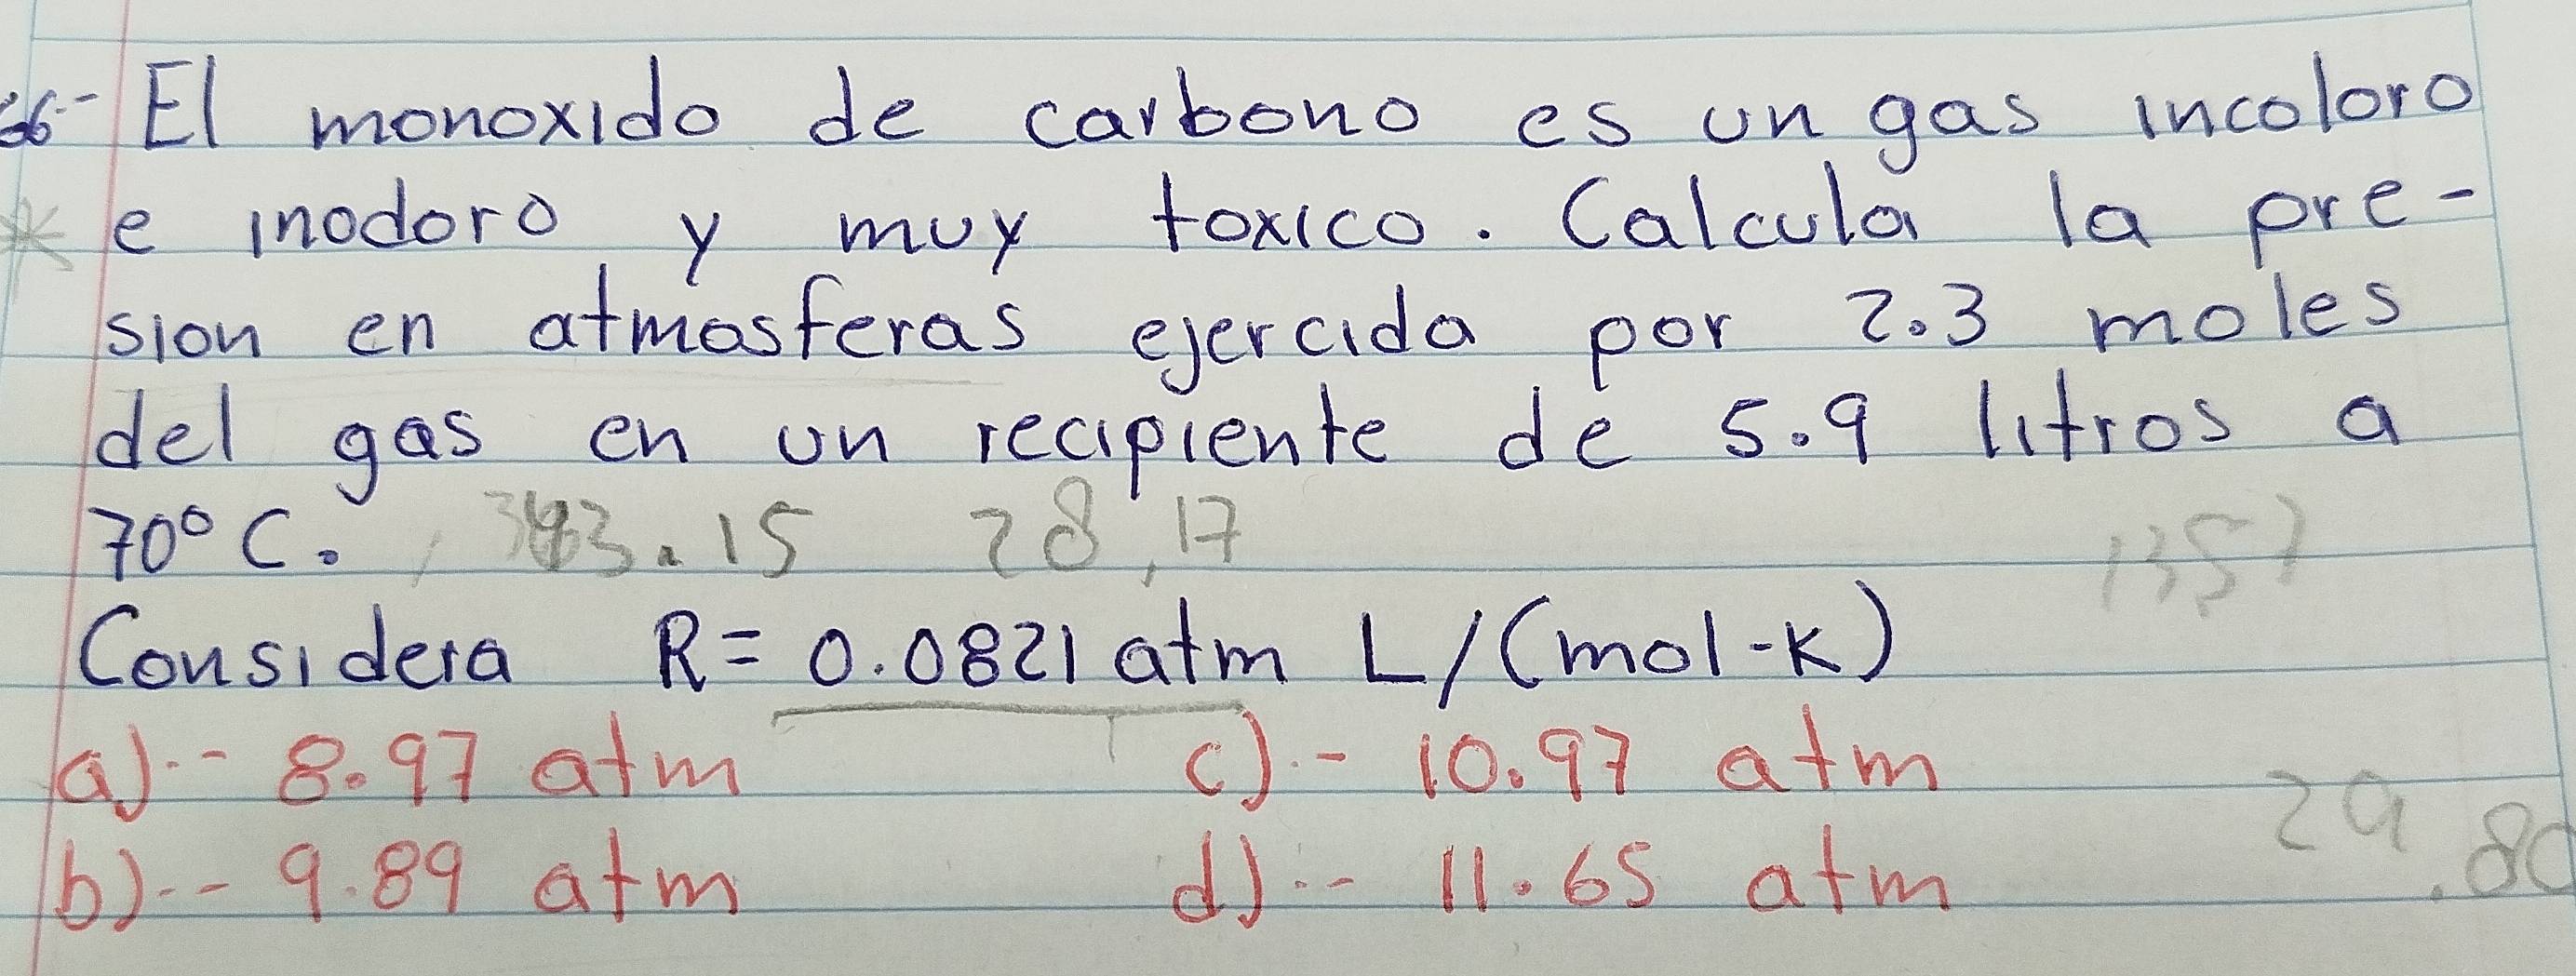 66.- El monoxido de carbono es un gas incoloro
* e inodoro y muy toxico. Calcula la pre-
sion en atmosferas ejercida por 2.3 moles
del gas en un recipiente de 5.9 litros a
70° C. 343.15 28,17
Considera R= 0.0821 atm L/(mol-K)
a).- 8.97 atm c).- 10.97 atm
b).- 9.89 atm d).- 11.65 atm